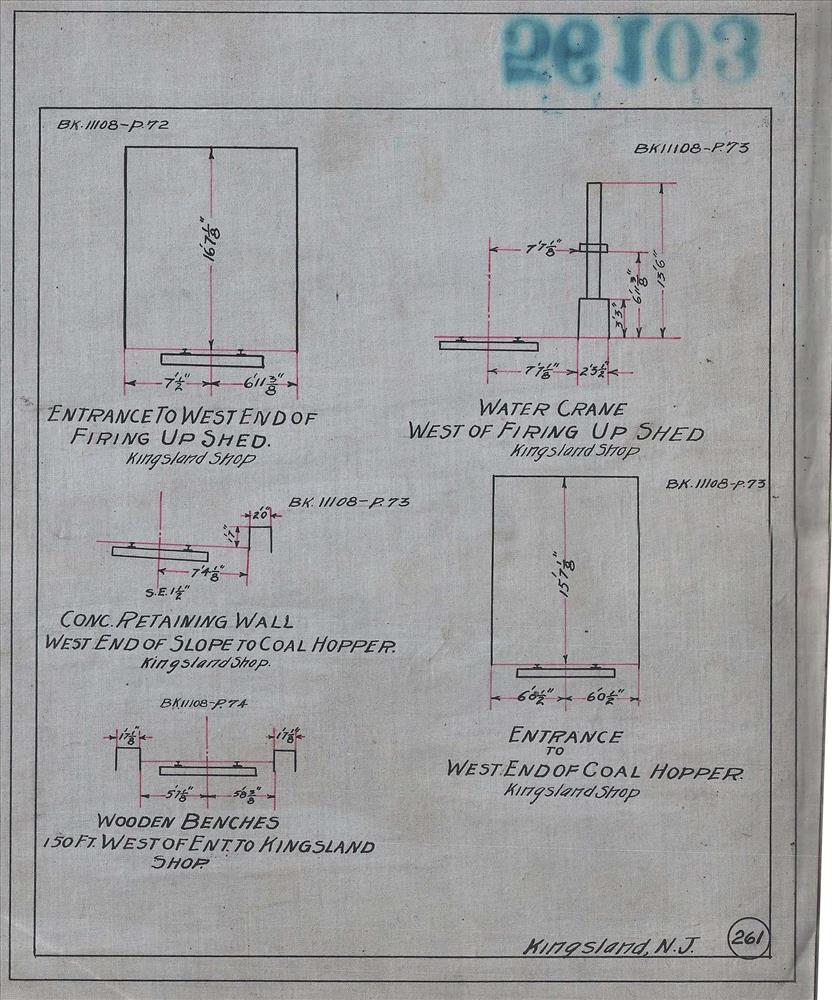 56103
BK.11108-P.72
16'7⅛"
7'½"
6'11⅜"
ENTRANCE TO WEST END OF
FIRING UP SHED.
Kingsland Shop
BK11108-P.73
7'7⅛"
3'3"
6'11⅜"
13'6"
7'7⅛"
2'5½"
WATER CRANE
WEST OF FIRING UP SHED
Kingsland Shop
BK.11108-P.73
2'0"
1'7"
7'4⅛"
S.E. 1½"
CONC. RETAINING WALL
WEST END OF SLOPE TO COAL HOPPER.
Kingsland Shop.
BK.11108-P.73
15'7⅛"
6'0½"
6'0½"
ENTRANCE
TO
WEST END OF COAL HOPPER.
Kingsland Shop
BK11108-P.74
1'7⅛"
1'7⅛"
5'7⅛"
5'8⅜"
WOODEN BENCHES
150 FT. WEST OF ENT. TO KINGSLAND
SHOP.
Kingsland, N.J.
261